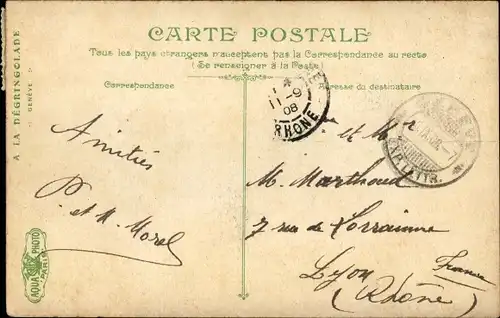 CARTE POSTALE
Tous les pays étrangers n'acceptent pas la Correspondance au recto
(Se renseigner à la Poste)
Correspondance
Adresse du destinataire
A LA DÉGRINGOLADE
GENÈVE
11-9
08
RHONE
EXP. LETTR.
Amitiés
P. et M. Morel
et Mr
M. Marthoud
7 rue de Lorraine
Lyon
France
(Rhône)
AQUA PHOTO
PARIS